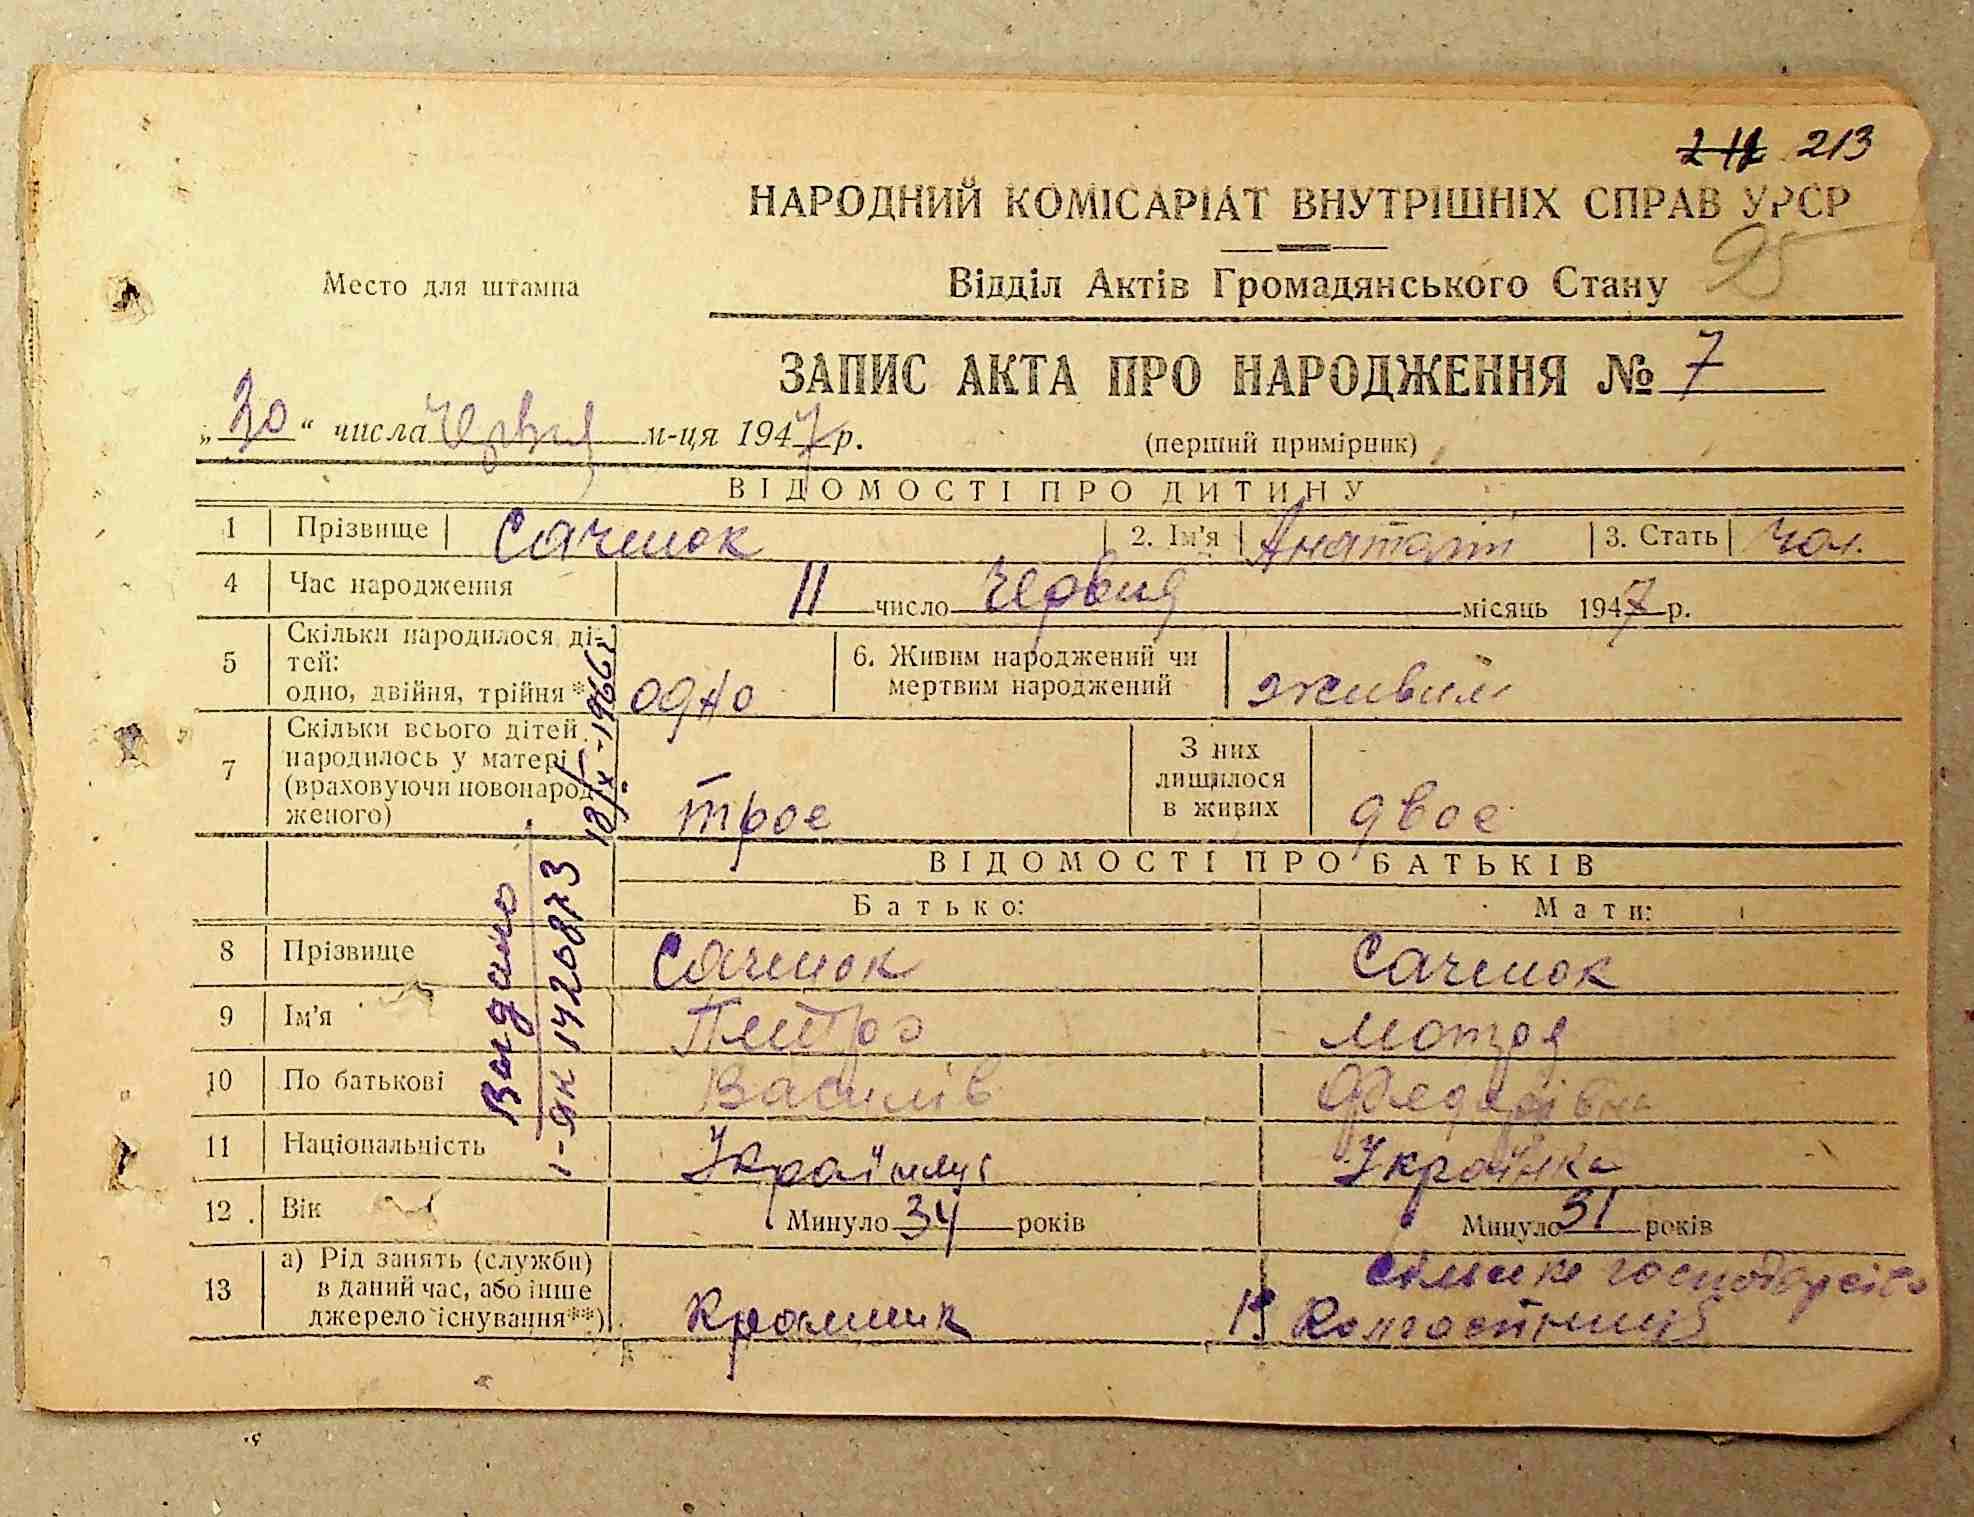 213
НАРОДНИЙ КОМІСАРІАТ ВНУТРІШНІХ СПРАВ УРСР
95
Место для штампа
Відділ Актів Громадянського Стану
ЗАПИС АКТА ПРО НАРОДЖЕННЯ № 7
„30“ числа Червня м-ця 1947 р.
(перший примірник)
ВІДОМОСТІ ПРО ДИТИНУ
1 Прізвище Саченок 2. Ім'я Анатолій 3. Стать чол.
4 Час народження 11 число Червня місяць 1947 р.
5 Скільки народилося ді-
тей:
одно, двійня, трійня* одно 6. Живим народжений чи
мертвим народжений живим
7 Скільки всього дітей
народилось у матері
(враховуючи новонарод
женого) троє З них
лишилося
в живих двоє
Видано
І-ЯК 1426873
18/ІХ-1966
ВІДОМОСТІ ПРО БАТЬКІВ
Батько: Мати:
8 Прізвище Саченок Саченок
9 Ім'я Петро Мотря
10 По батькові Василів
11 Національність Українець Українка
12. Вік Минуло 34 років Минуло 31 років
13 а) Рід занять (служби)
в даний час, або інше
джерело існування**)
сільське господарство